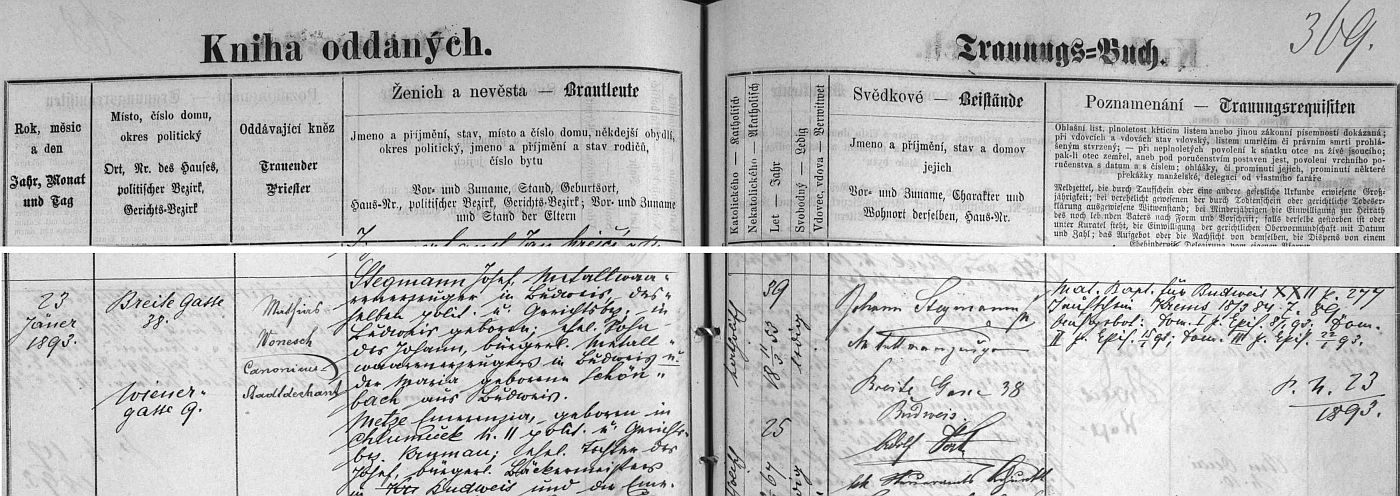 Kniha oddaných.
Trauungs=Buch.
369.
Rok, měsíc
a den
Jahr, Monat
und Tag
Místo, číslo domu,
okres politický
Ort, Nr. des Hauses,
politischer Bezirk,
Gerichts-Bezirk
Oddávající kněz
Trauender
Priester
Ženich a nevěsta — Brautleute
Jmeno a příjmění, stav, místo a číslo domu, někdejší obydlí,
okres politický, jmeno a příjmění a stav rodičů,
číslo bytu
Vor- und Zuname, Stand, Geburtsort,
Haus-Nr., politischer Bezirk, Gerichts-Bezirk; Vor- und Zuname
und Stand der Eltern
Katolického — Katholisch
Nekatolického — Akatholisch
Let — Jahr
Svobodný — Ledig
Vdovec, vdova — Verwitwet
Svědkové — Beistände
Jmeno a příjmění, stav a domov
jejich
Vor- und Zuname, Charakter und
Wohnort derselben, Haus-Nr.
Poznamenání — Trauungsrequisiten
Ohlašní list, plnoletost křticím listem anebo jinou zákonní písemností dokázaná;
při vdovcích a vdovách stav vdovský, listem umrlčím či právním smrti prohlá-
šením stvrzený; — při neplnoletých povolení k sňatku otce na živě jsoucího;
pak-li otec zemřel, aneb pod poručenstvím postaven jest, povolení vrchního po-
ručenstva s datum a s číslem; ohlášky, či prominutí jejich, prominutí některé
překážky manželské, delegací od vlastního faráře
Meldzettel, die durch Taufschein oder eine andere gesetzliche Urkunde erwiesene Groß-
jährigkeit; bei verehelicht gewesenen der durch Todtenschein oder gerichtliche Todeser-
klärung ausgewiesene Witwenstand; bei Minderjährigen die Einwilligung zur Heirath
des noch lebenden Vaters nach Form und Vorschrift; falls derselbe gestorben ist oder
unter Kuratel steht, die Einwilligung der gerichtlichen Obervormundschaft mit Datum
und Zahl; das Aufgebot oder die Nachsicht von demselben, die Dispens von einem
23
Jäner
1893.
Breite Gasse
38.
Wiener-
gasse 9.
Mathias
Wonesch
Canonicus
Stadtdechant
Stegmann Josef, Metallwaa-
renerzeuger in Budweis, des-
selben polit. u. Gerichtsbz., in
Budweis geboren, ehel. Sohn
des Johann, bürgerl. Metall-
waarenerzeugers in Budweis u
der Maria geborene Schön-
bach aus Budweis.
Metze Emerenzia, geboren in
Chlumeček N. 11 polit. u. Gerichts-
bez. Krumau; ehel. Tochter des
Josef, bürgerl. Bäckermeisters
in Budweis und die Eme-
katholisch
39
18 11/3 53
ledig
25
67
ledig
Johann Stegmann
Metallwarenerzeuger
Breite Gasse 38
Budweis.
Adolf
k.k. Steueramts
Mat. Bapt. für Budweis XXII p. 277
Tom. I p. Epif. 8/1 93. Dom.
II p. Epif. 15/1 93; Dom. III p. Epif. 22/1 93.
P. N. 23
1893.